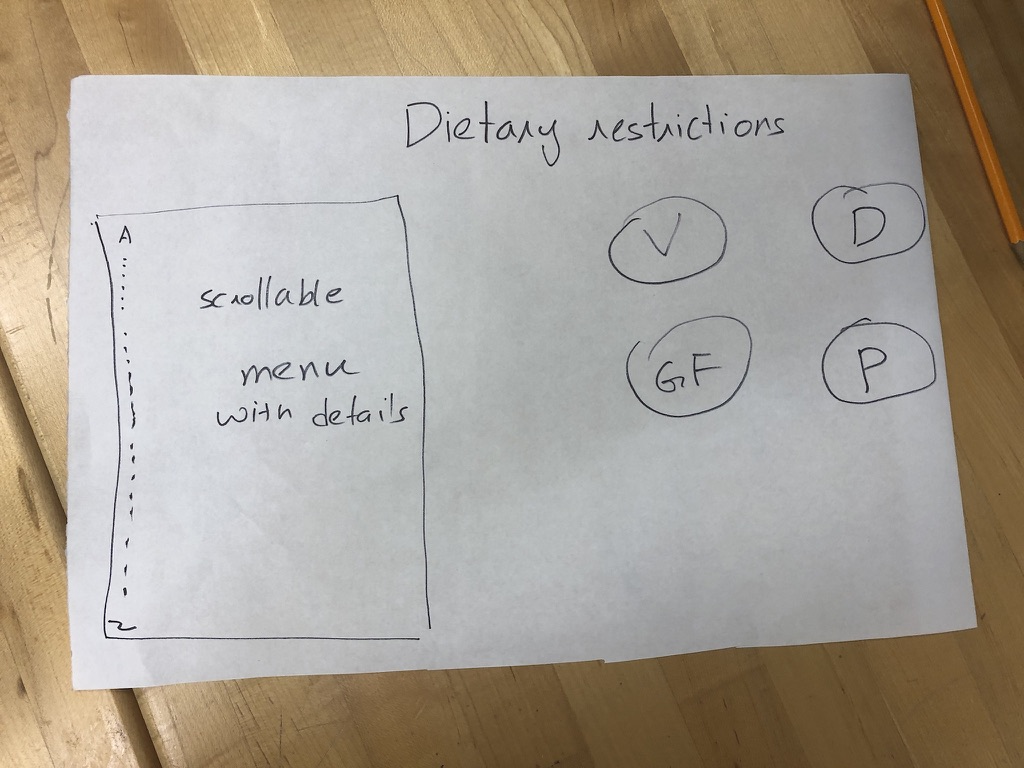 Dietary restrictions
A
scrollable
menu
with details
Z
V
D
GF
P